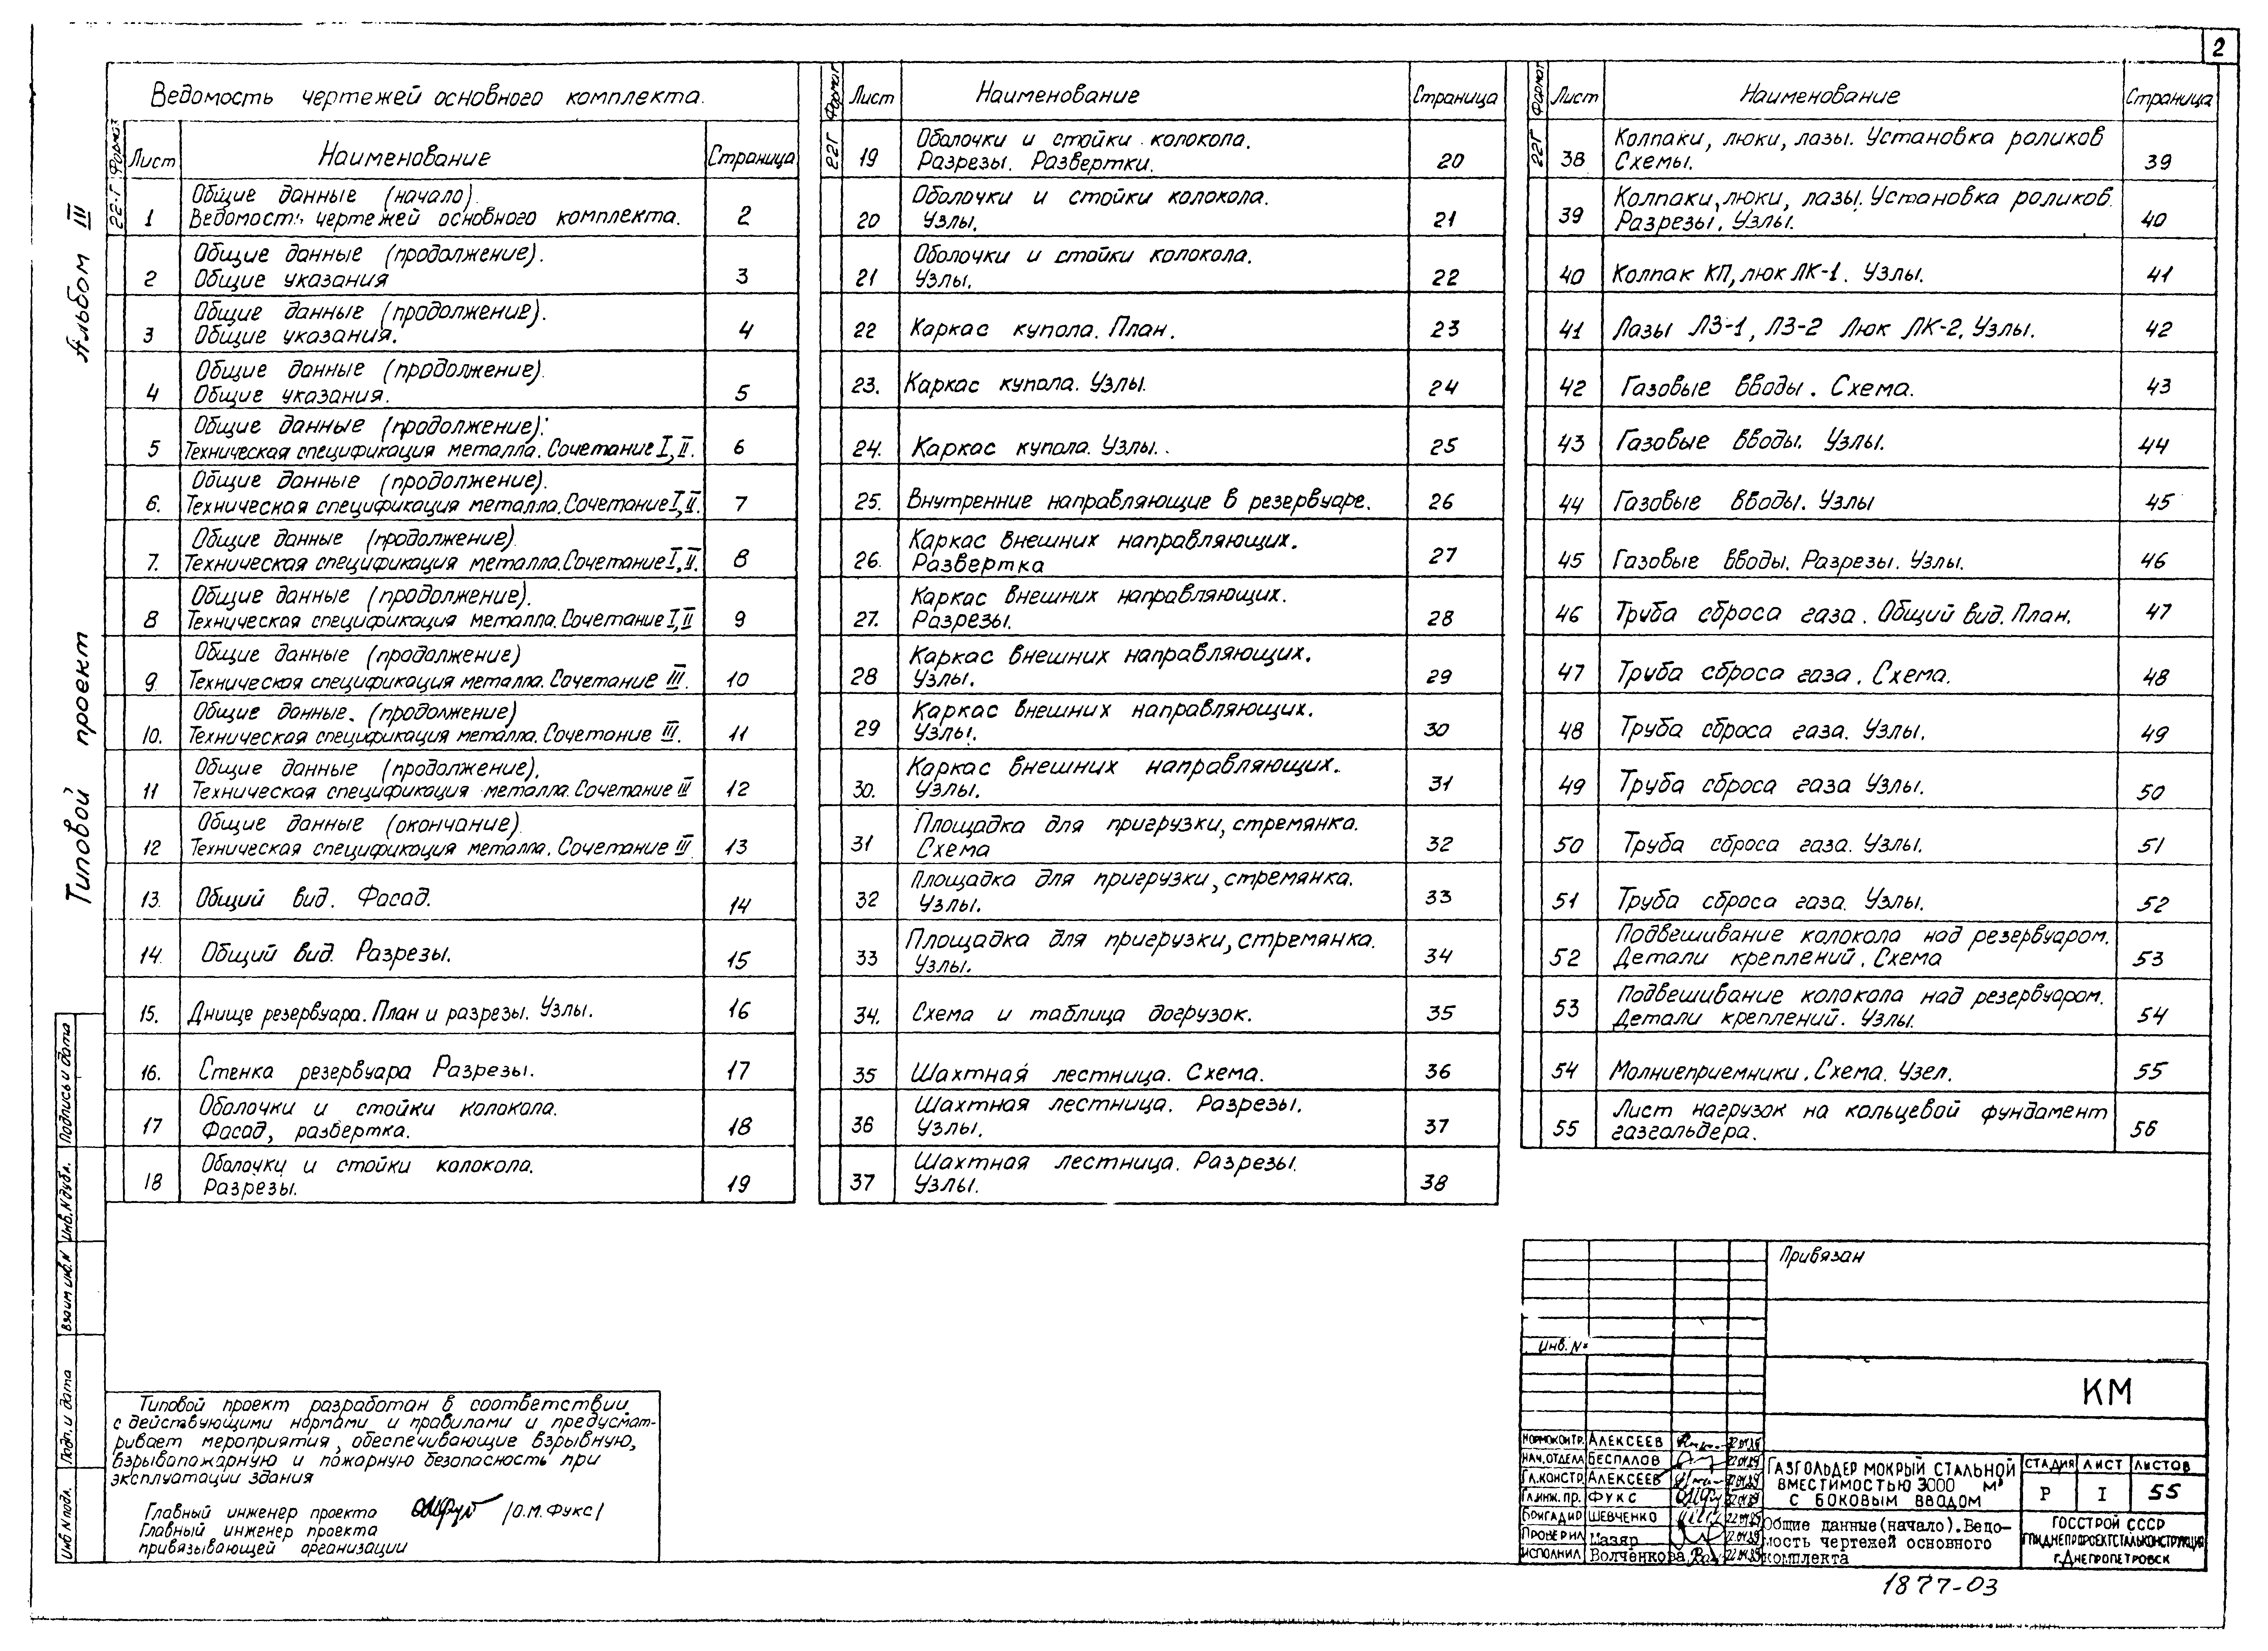 2
Типовой проект Альбом III
Ведомость чертежей основного комплекта.
Формат Лист Наименование Страница
22-Г
1 Общие данные (начало).
Ведомость чертежей основного комплекта. 2
2 Общие данные (продолжение).
Общие указания 3
3 Общие данные (продолжение).
Общие указания. 4
4 Общие данные (продолжение).
Общие указания. 5
5 Общие данные (продолжение).
Техническая спецификация металла. Сочетание I, II. 6
6. Общие данные (продолжение).
Техническая спецификация металла. Сочетание I, II. 7
7. Общие данные (продолжение).
Техническая спецификация металла. Сочетание I, II. 8
8 Общие данные (продолжение).
Техническая спецификация металла. Сочетание I, II 9
9 Общие данные (продолжение)
Техническая спецификация металла. Сочетание III. 10
10. Общие данные. (продолжение)
Техническая спецификация металла. Сочетание III. 11
11 Общие данные (продолжение).
Техническая спецификация металла. Сочетание III 12
12 Общие данные (окончание)
Техническая спецификация металла. Сочетание III 13
13. Общий вид. Фасад. 14
14. Общий вид. Разрезы. 15
15. Днище резервуара. План и разрезы. Узлы. 16
16. Стенка резервуара Разрезы. 17
17 Оболочки и стойки колокола.
Фасад, развертка. 18
18 Оболочки и стойки колокола.
Разрезы. 19
Формат Лист Наименование Страница
22Г
19 Оболочки и стойки колокола.
Разрезы. Развертки. 20
20 Оболочки и стойки колокола.
Узлы. 21
21 Оболочки и стойки колокола.
Узлы. 22
22 Каркас купола. План. 23
23. Каркас купола. Узлы. 24
24. Каркас купола. Узлы. 25
25. Внутренние направляющие в резервуаре. 26
26. Каркас внешних направляющих.
Развертка 27
27. Каркас внешних направляющих.
Разрезы. 28
28 Каркас внешних направляющих.
Узлы. 29
29 Каркас внешних направляющих.
Узлы. 30
30. Каркас внешних направляющих.
Узлы. 31
31 Площадка для пригрузки, стремянка.
Схема 32
32 Площадка для пригрузки, стремянка.
Узлы. 33
33 Площадка для пригрузки, стремянка.
Узлы. 34
34. Схема и таблица догрузок. 35
35 Шахтная лестница. Схема. 36
36 Шахтная лестница. Разрезы.
Узлы. 37
37 Шахтная лестница. Разрезы.
Узлы. 38
Формат Лист Наименование Страница
22Г
38 Колпаки, люки, лазы. Установка роликов
Схемы. 39
39 Колпаки, люки, лазы. Установка роликов.
Разрезы. Узлы. 40
40 Колпак КП, люк ЛК-1. Узлы. 41
41 Лазы ЛЗ-1, ЛЗ-2 Люк ЛК-2. Узлы. 42
42 Газовые вводы. Схема. 43
43 Газовые вводы. Узлы. 44
44 Газовые вводы. Узлы 45
45 Газовые вводы. Разрезы. Узлы. 46
46 Труба сброса газа. Общий вид. План. 47
47 Труба сброса газа. Схема. 48
48 Труба сброса газа. Узлы. 49
49 Труба сброса газа Узлы. 50
50 Труба сброса газа. Узлы. 51
51 Труба сброса газа. Узлы. 52
52 Подвешивание колокола над резервуаром.
Детали креплений. Схема 53
53 Подвешивание колокола над резервуаром.
Детали креплений. Узлы. 54
54 Молниеприемники. Схема. Узел. 55
55 Лист нагрузок на кольцевой фундамент
газгольдера. 56
Инв.N подл. Подп. и дата Взаим инв.N Инв.N дубл. Подпись и дата
Типовой проект разработан в соответствии
с действующими нормами и правилами и предусмат-
ривает мероприятия, обеспечивающие взрывную,
взрывопожарную и пожарную безопасность при
эксплуатации здания
Главный инженер проекта /О.М.Фукс/
Главный инженер проекта
привязывающей организации
Привязан
Инв. N=
КМ
НОРМОКОНТР. АЛЕКСЕЕВ
НАЧ.ОТДЕЛА БЕСПАЛОВ
ГЛ.КОНСТР. АЛЕКСЕЕВ
ГЛ.ИНЖ.ПР. ФУКС
БРИГАДИР ШЕВЧЕНКО
ПРОВЕРИЛ Мазяр
ИСПОЛНИЛ Волченкова
ГАЗГОЛЬДЕР МОКРЫЙ СТАЛЬНОЙ
ВМЕСТИМОСТЬЮ 3000 М³
С БОКОВЫМ ВВОДОМ
СТАДИЯ ЛИСТ ЛИСТОВ
Р I 55
Общие данные(начало).Ведо-
мость чертежей основного
комплекта
ГОССТРОЙ СССР
ГПИ ДНЕПРОПРОЕКТСТАЛЬКОНСТРУКЦИЯ
Г.ДНЕПРОПЕТРОВСК
1877-03